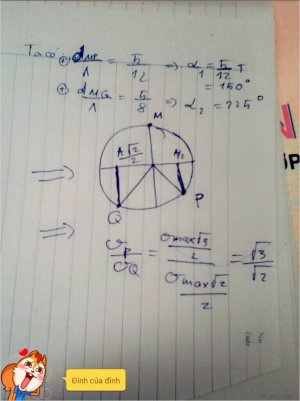 Ta có: ⊕ dMP/λ = 5/12 ⇒ α1 = 5/12 T
= 150°
⊕ dMQ/λ = 5/8 ⇒ α2 = 225°
M
A√2/2
Q
P
⇒
⇒ vp/vQ = (vmax√3/2)/(vmax√2/2) = √3/√2
Đỉnh của đỉnh